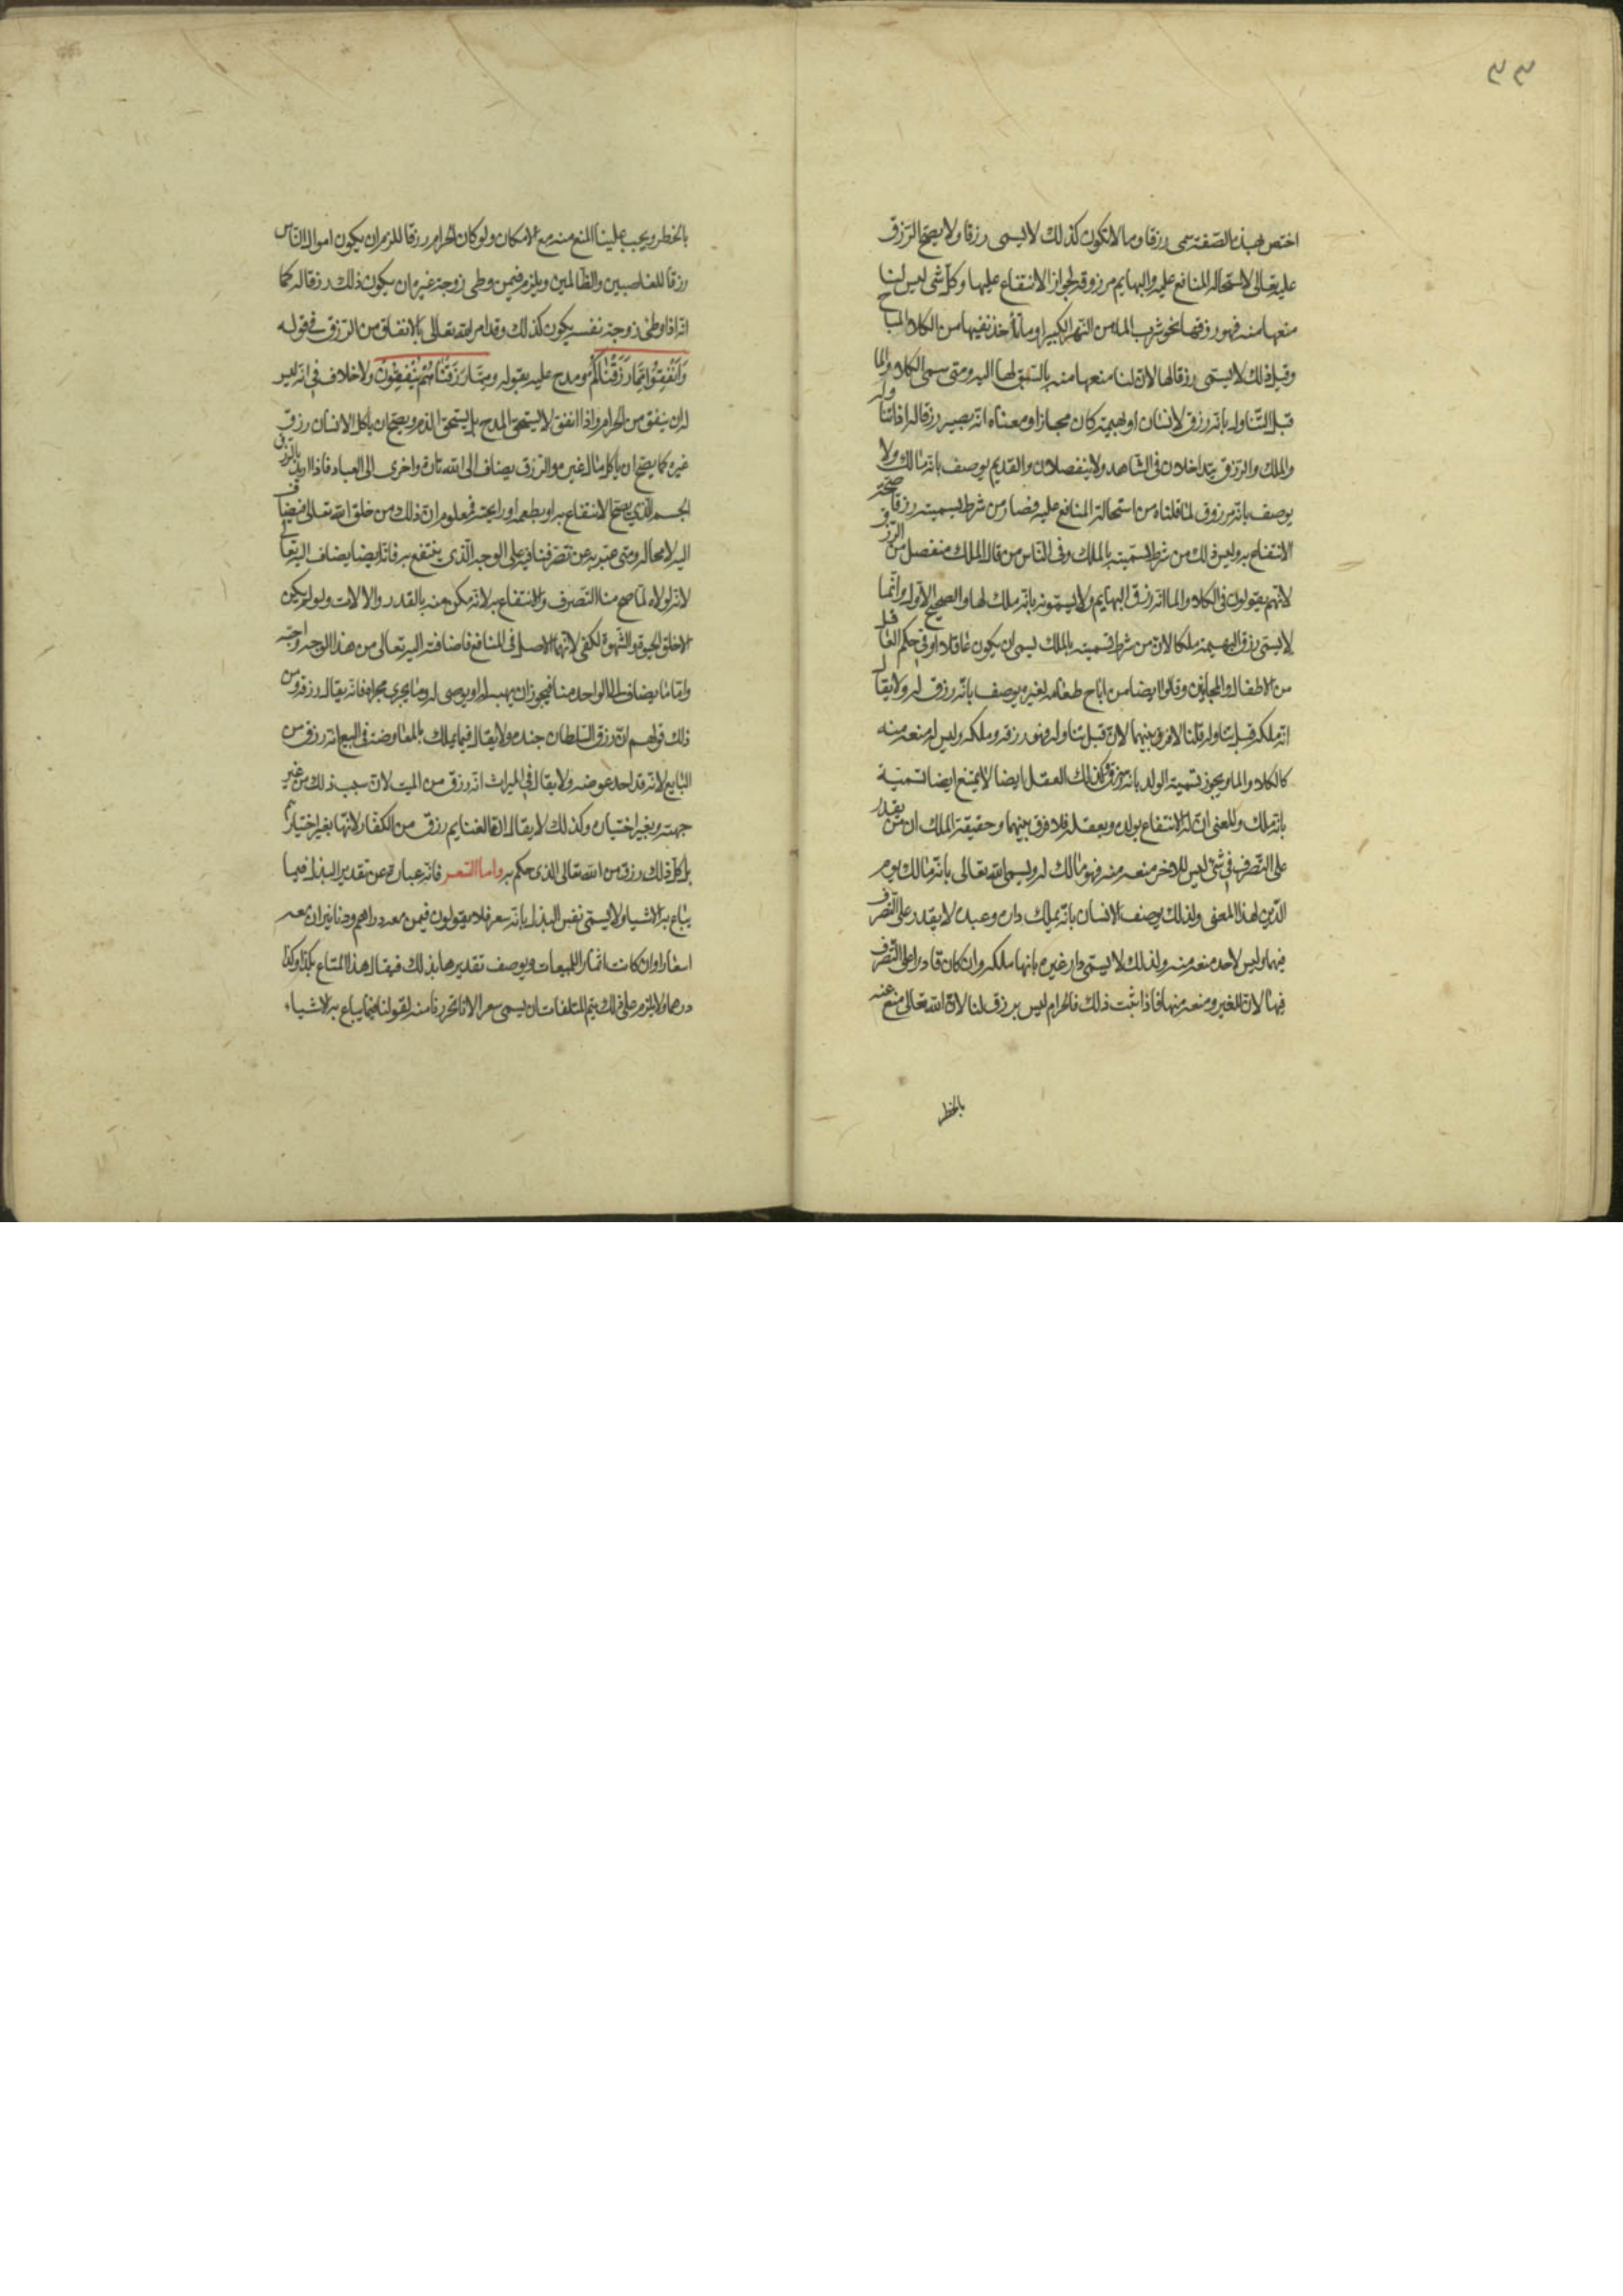 ٣٣
اختص بهذه الصفة سمى رزقا وما لا تكون كذلك لا يسمى رزقا ولا يصح الرزق
عليه تعالى لاستحالة المنافع عليه والبهايم مرزوقة لجواز الانتفاع عليها وكل شى ليس لنا
منعها منه فهو رزقها نحو شرب الماء من النهر الكبير او ما تأخذ بفيها من الكلاء المباح
وقبل ذلك لا يسمى رزقا لها لان لنا منعها منه بالسبق لها اليه ومتى سمى الكلاء والما
قبل التناول بانه رزق لانسان او بهيمة كان مجازا ومعناه انه يصير رزقا له اذا تناوله
والملك والرزق يتداخلان فى الشاهد ولا ينفصلان والقديم يوصف بانه مالك ولا
يوصف بانه مرزوق لما قلناه من استحالة المنافع عليه فصار من شرط تسميته رزقا صحة
الانتفاع به وليس ذلك من شرط تسميته بالملك وفى الناس من قال الملك منفصل من الرزق
لانهم يقولون فى الكلاء والما انه رزق البهايم ولا يسمونه بانه ملك لها والصحيح الاول وانما
لا يسمى رزق البهيمة ملكا لان من شرط تسميته بالملك يسمى ان يكون عاقلا او فى حكم العاقل
من الاطفال والمجانين وقالوا ايضا من اباح طعامه لغيره يوصف بانه رزق له ولا يقال
انه ملكه قبل تناوله قلنا لا فرق بينهما لان قبل تناوله هو رزقه وملكه وليس له منعه منه
كالكلاء والما ويجوز تسمية الولد بانه رزق وكذلك العقل ايضا لا يمتنع ايضا تسمية
بانه ملك والمعنى ان له الانتفاع بولده وبعقله فلا فرق بينهما وحقيقة الملك ان من يقدر
على التصرف فى شئ ليس للاخر منعه منه فهو مالك له ويسمى الله تعالى بانه مالك يوم
الدين لهذا المعنى ولذلك يوصف الانسان بانه يملك داره وعبده لا يقدر على التصرف
فيها وليس لاحد منعه منه ولذلك لا يسمى دار غيره بانها ملكه وان كان قادرا على التصرف
فيها لان للغير ومنعه منها فاذا ثبت ذلك فالحرام ليس برزق لنا لان الله تعالى منع عنه
بالحظر
بالحظر ويجب علينا المنع منه مع الامكان ولو كان الحرام رزقا للزم ان يكون اموال الناس
رزقا للغاصبين والظالمين ويلزم فيمن وطى زوجة غيره ان يكون ذلك رزقا له كما
انه اذا وطى زوجة نفسه يكون كذلك وقد امر الله تعالى بالانفاق من الرزق فى قوله
وَاَنْفِقُوا مِمَّا رَزَقْنَاكُمْ ومدح عليه بقوله وَمِمَّا رَزَقْنَاهُمْ يُنْفِقُونَ ولا خلاف فى انه ليس
له ان ينفق من الحرام واذا انفق لا يستحق المدح بل يستحق الذم ويصح ان ياكل الانسان رزق
غيره كما يصح ان ياكل مال غيره والرزق يضاف الى الله تارة واخرى الى العباد فاذا اريد بالرزق
الجسم الذى يصح الانتفاع به او بطعمه او رايحته فمعلوم ان ذلك من خلق الله تعالى فيضاف
اليه لا محالة ومتى عبر به عن تصرفنا فيه على الوجه الذى ينتفع به فانه ايضا يضاف اليه تعالى
لانه لولاه لما صح منا التصرف والانتفاع به لانه مكن منه بالقدر والالات ولو لم يكن
الا خلق الحيوة والشهوة لكفى لانهما الاصل فى المنافع فاضافته اليه تعالى من هذا الوجه واجبة
واما ما يضاف الى الواحد منا فيجوز ان يهب له او يوصى له وما يجرى مجراه فانه يقال رزقه ومن
ذلك قولهم ان رزق السلطان جنده ولا يقال فيما يملك بالمعاوضة فى البيع انه رزق من
البايع لانه قد اخذ عوضه ولا يقال فى الميراث انه رزق من الميت لان سبب ذلك من غير
جهته وبغير اختياره وكذلك لا يقال الغنايم رزق من الكفار لانها بغير اختيارهم
بل كل ذلك رزق من الله تعالى الذى حكم به واما السعر فانه عبارة عن تقدير البذل فيما
يباع به الاشياء ولا يسمى نفس البذل بانه سعر فلا يقولون فيمن معه دراهم ودنانير ان معه
اسعارا وان كانت اثمار المبيعات ويوصف تقديرها بذلك فيقال هذا المتاع بكذا وكذا
درهما ولا يلزم على ذلك قيم المتلفات ان يسمى سعرا لانا تحرزنا منه لقولنا فيما يباع به الاشياء